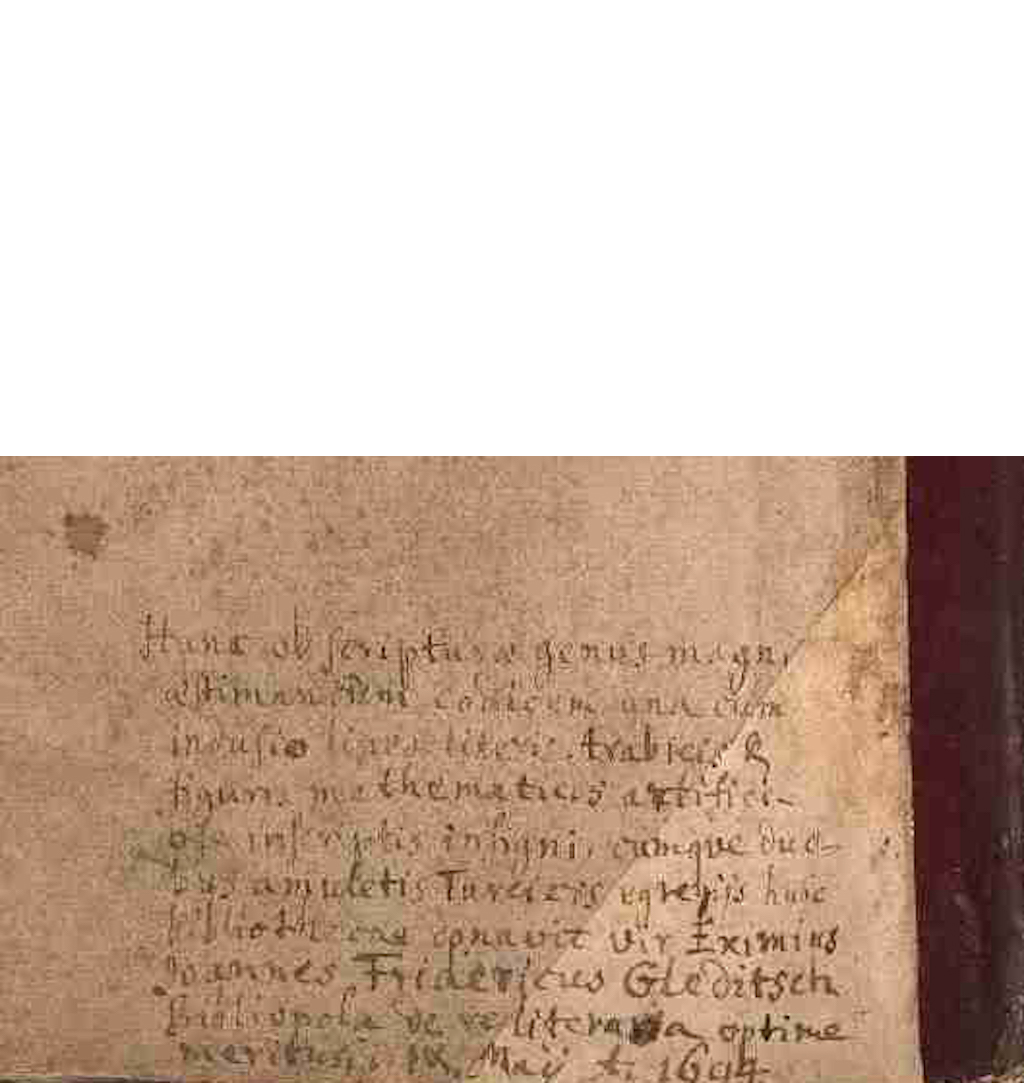 Hanc ob scripturae genus magni
aestimandum codicem una cum
indusio lineo literis Arabicis &
figuris mathematicis artifici-
ose inscriptis insigni, cumque duo-
bus amuletis Turcicis egregijs huic
bibliothecae donavit Vir Eximius
Joannes Fridericus Gleditsch
bibliopola de re literaria optime
meritus, IX. Maij A. 1694